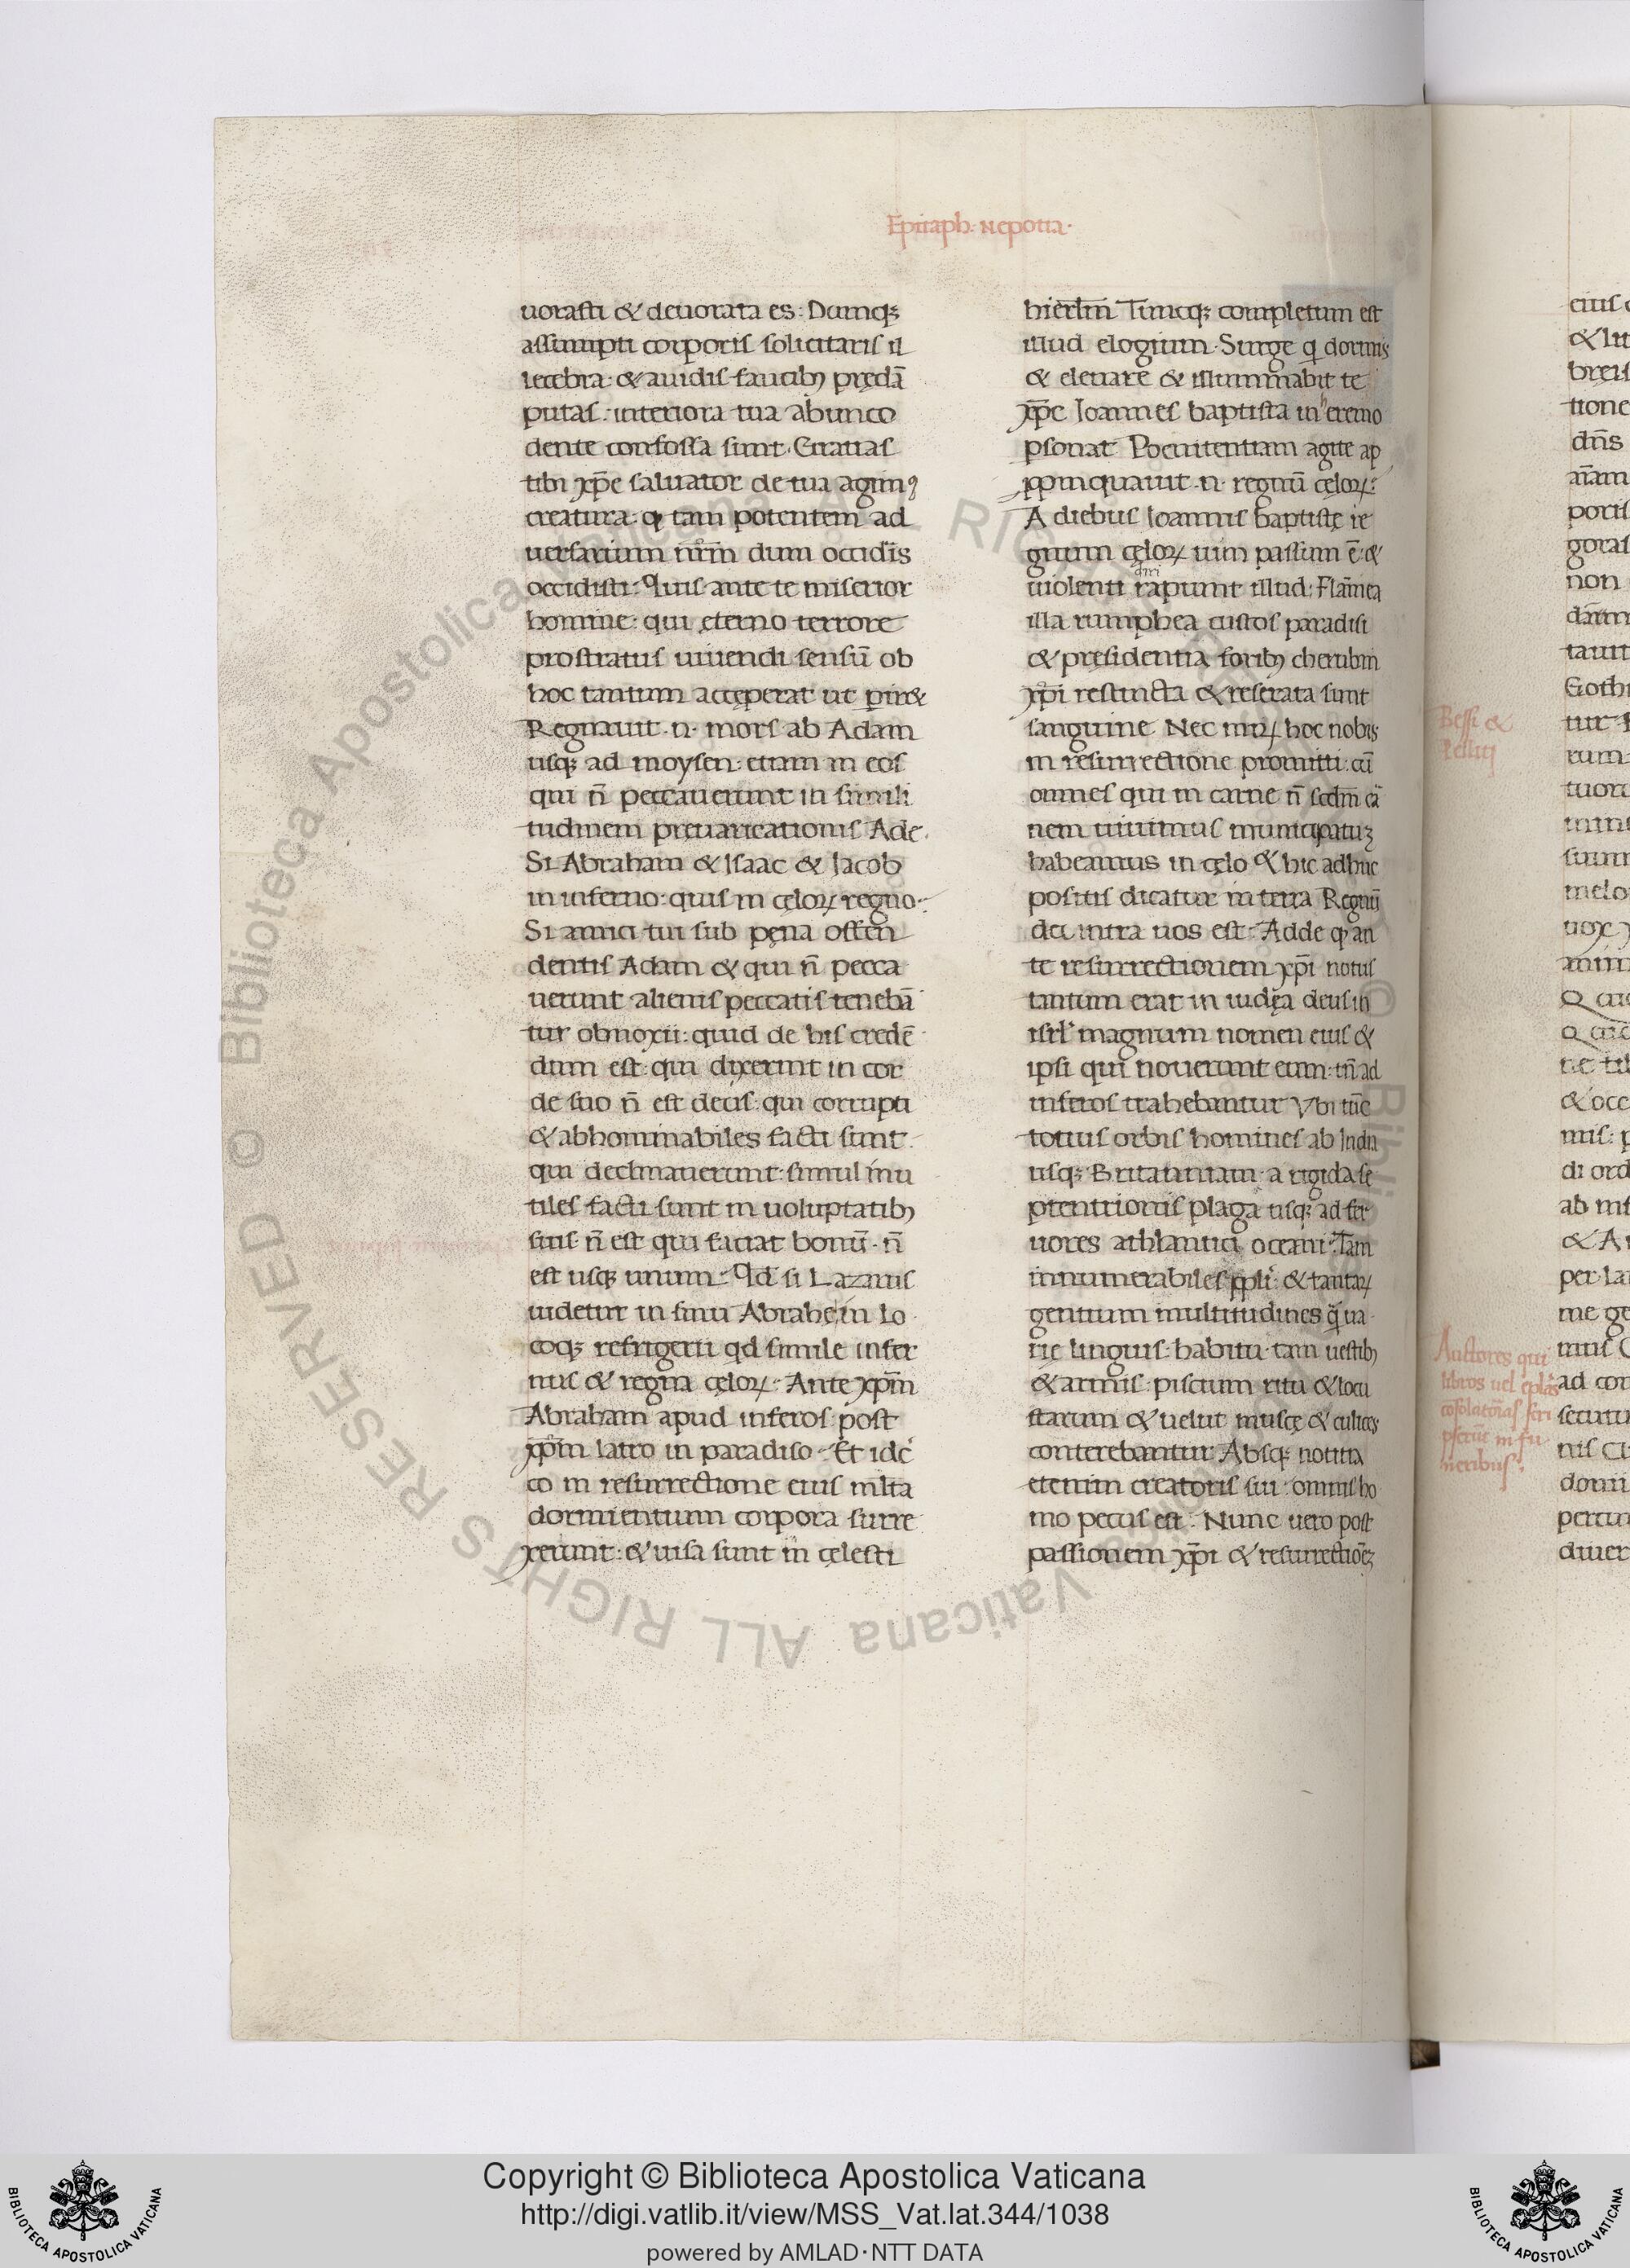 Epitaph. nepotia.
uorasti & deuorata es: Dumq3
assumpti corporis solicitaris il
lecebra: & auidis faucib9 prędā
putas: interiora tua abunco
dente confossa sunt. Gratias
tibi xp̄e saluator de tua agim9
creatura: q tam potentem ad
uersarium nr̄m dum occidis
occidisti: Quis ante te miserior
homine: qui ęterno terrore
prostratus uiuendi sensū ob
hoc tantum accęperat ut pir&
Regnauit .n. mors ab Adam
usq3 ad moysen: etiam in eos
qui n̄ peccauerunt in simili
tudinem preuaricationis Adę.
Si Abraham & Isaac & Iacob
in inferno: quis in cęloꝝ regno.
Si amici tui sub pęna offen
dentis Adam & qui n̄ pecca
uerunt alienis peccatis tenebā
tur obnoxii: quid de his credē
dum est: qui dixerunt in cor
de suo n̄ est deus: qui corrupti
& abhominabiles facti sunt
qui declinauerunt: simul inu
tiles facti sunt in uoluptatib9
suis: n̄ est qui faciat bonū. n̄
est usq3 unum: Qd si Lazarus
uidetur in sinu Abrahę: in lo
coq3 refrigerii qd simile infer
nus & regna cęloꝝ: Ante xp̄m
Abraham apud inferos: post
xp̄m latro in paradiso. Et idc
co in resurrectione eius mlta
dormientum corpora surre
xerunt: & uisa sunt in cęlesti
hierlm̄ Tuncq3 completum est
illud elogium. Surge q dormis
& eleuare & illuminabit te
xp̄c Ioannes baptista in heremo
ꝑsonat Poenitentiam agite ap
ꝓpinquauit .n. regnū cęloꝝ:
A diebus Ioannis baptistę re
gnum cęloꝝ uim passum ē: &
uiolenti diri rapiunt illud: Flāmea
illa rumphea custos paradisi
& presidentia forib9 cherubin
xp̄i restincta & reserata sunt
sanguine Nec miꝝ hoc nobis
in resurrectione promitti: cū
omnes qui in carne n̄ scdm cā
nem uiuimus municipatu3
habeamus in cęlo & hic adhuc
positis dicatur in terra Regnū
dei intra uos est: Adde q an
te resurrectionem xp̄i notus
tantum erat in iudęa deus in
isrl̄ magnum nomen eius &
ipsi qui nouerunt eum: tn̄ ad
inferos trahebantur Vbi tūc
totius orbis homines ab India
usq3 Britanniam a rigida se
ptentrionis plaga usq3 ad fer
uores athlantici oceani: Tam
innumerabiles ppli: & tantaꝝ
gentium multitudines q̄ ua
rię linguis: habitu tam uestib9
& armis: piscium ritu & locu
starum & uelut muscę & culices
conterebantur Absq3 notitia
etenim creatoris sui: omnis ho
mo pecus est: Nunc uero post
passionem xp̄i & resurrectiōe3
Bessi &
Pelliti
Auctores qui
libros uel eplas
cōsolatorias scri
pserūt in fu
neribus.